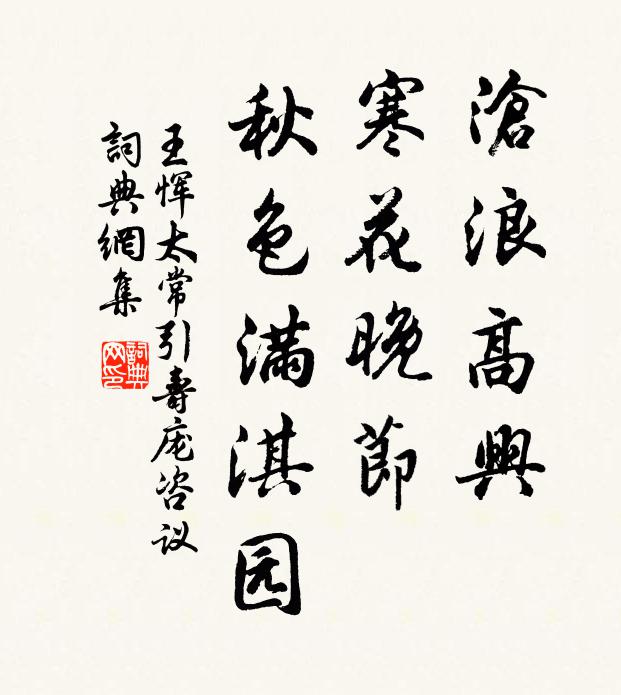 滄浪高興
寒花晚節
秋色滿淇园
王恽太常引壽庞咨议
詞典網集
詞典网印